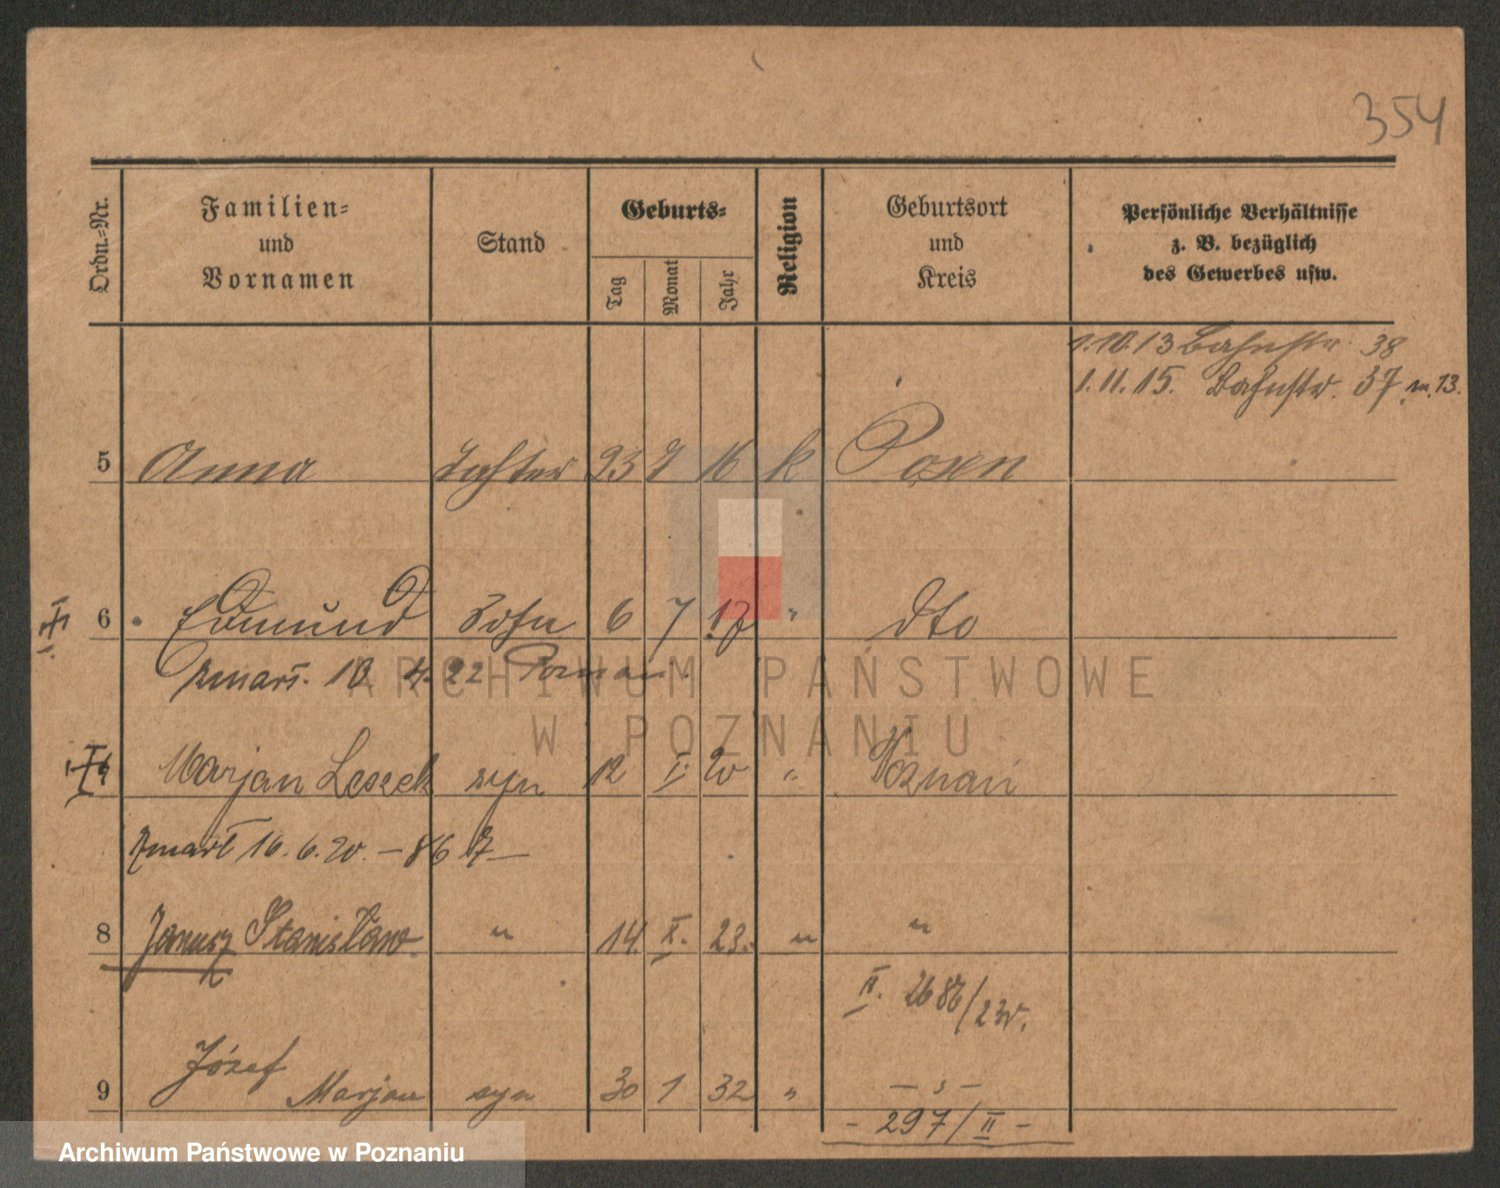 354
Ordn.=Nr.
Familien=
und
Vornamen
Stand
Geburts=
Tag
Monat
Jahr
Religion
Geburtsort
und
Kreis
Persönliche Verhältnisse
z. B. bezüglich
des Gewerbes usw.
1.10.13 Bahnstr. 38
1.11.15. Bahnstr. 37 m. 13.
5 Anna Tochter 23 7 16 k Posen
6 Edmund Sohn 6 7 17 " dto
zmarł. 10 4. 22 Poznań.
Marjan Leszek syn 12 I. 20 " Poznań
zmarł 16.6.20. –
8 Janusz Stanisław " 14. X. 23. " "
II. 2686/23
9 Józef Marjan syn 30 1 32 " — " —
- 297/II -
ARCHIWUM PAŃSTWOWE
W POZNANIU
Archiwum Państwowe w Poznaniu